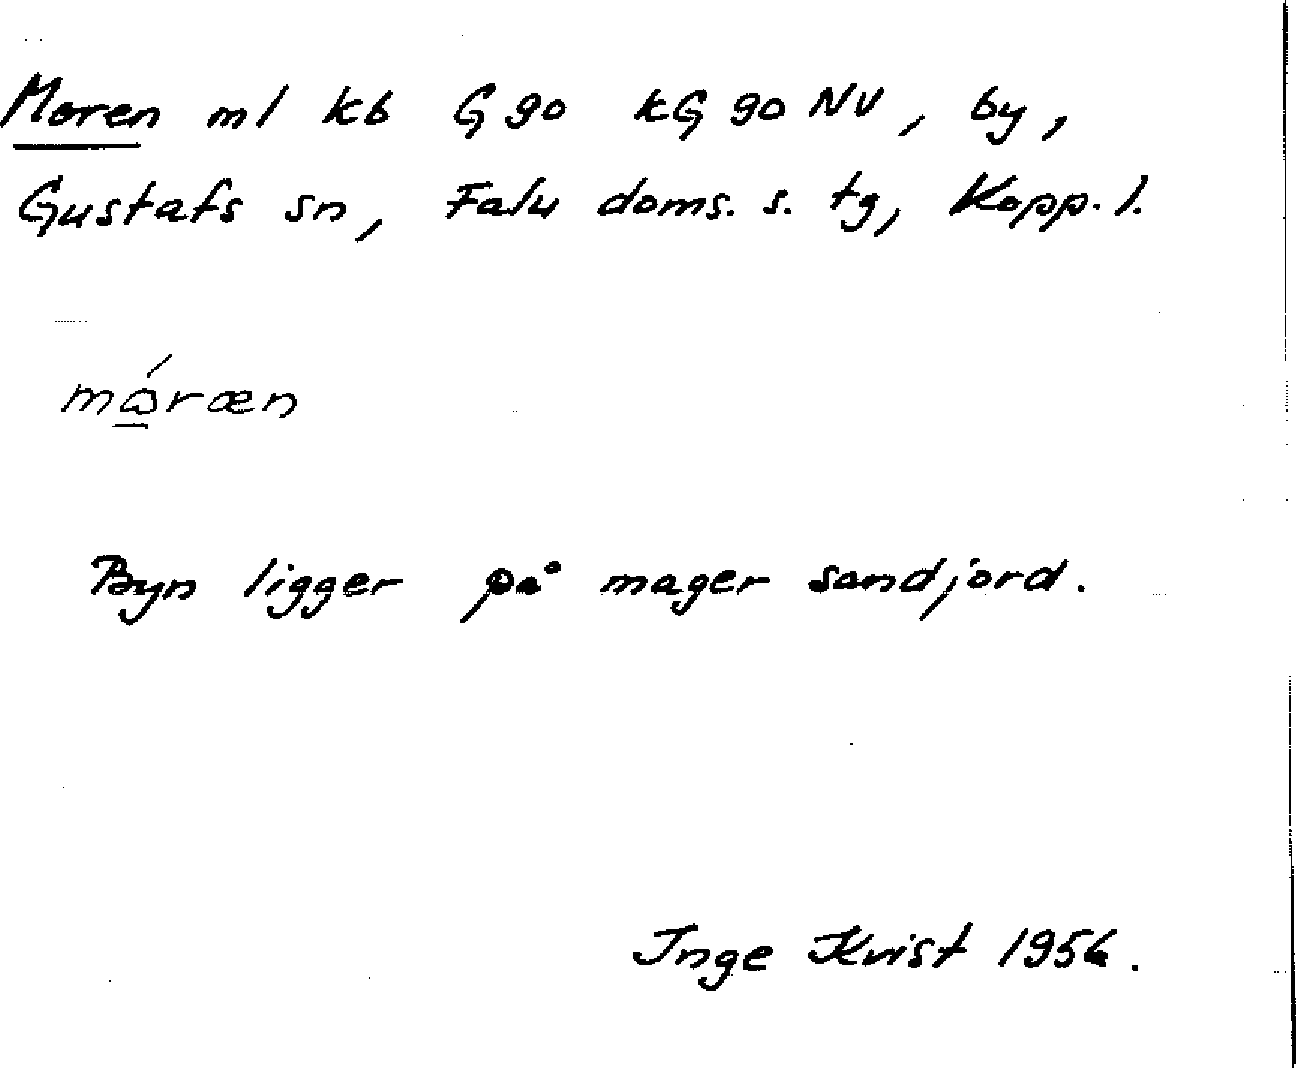 Moren ml kb G 90 kG 90 NV, by,
Gustafs sn, Falu doms. s. tg, Kopp. l.
mɷ̲́ræn
Byn ligger på mager sandjord.
Inge Kvist 1956.